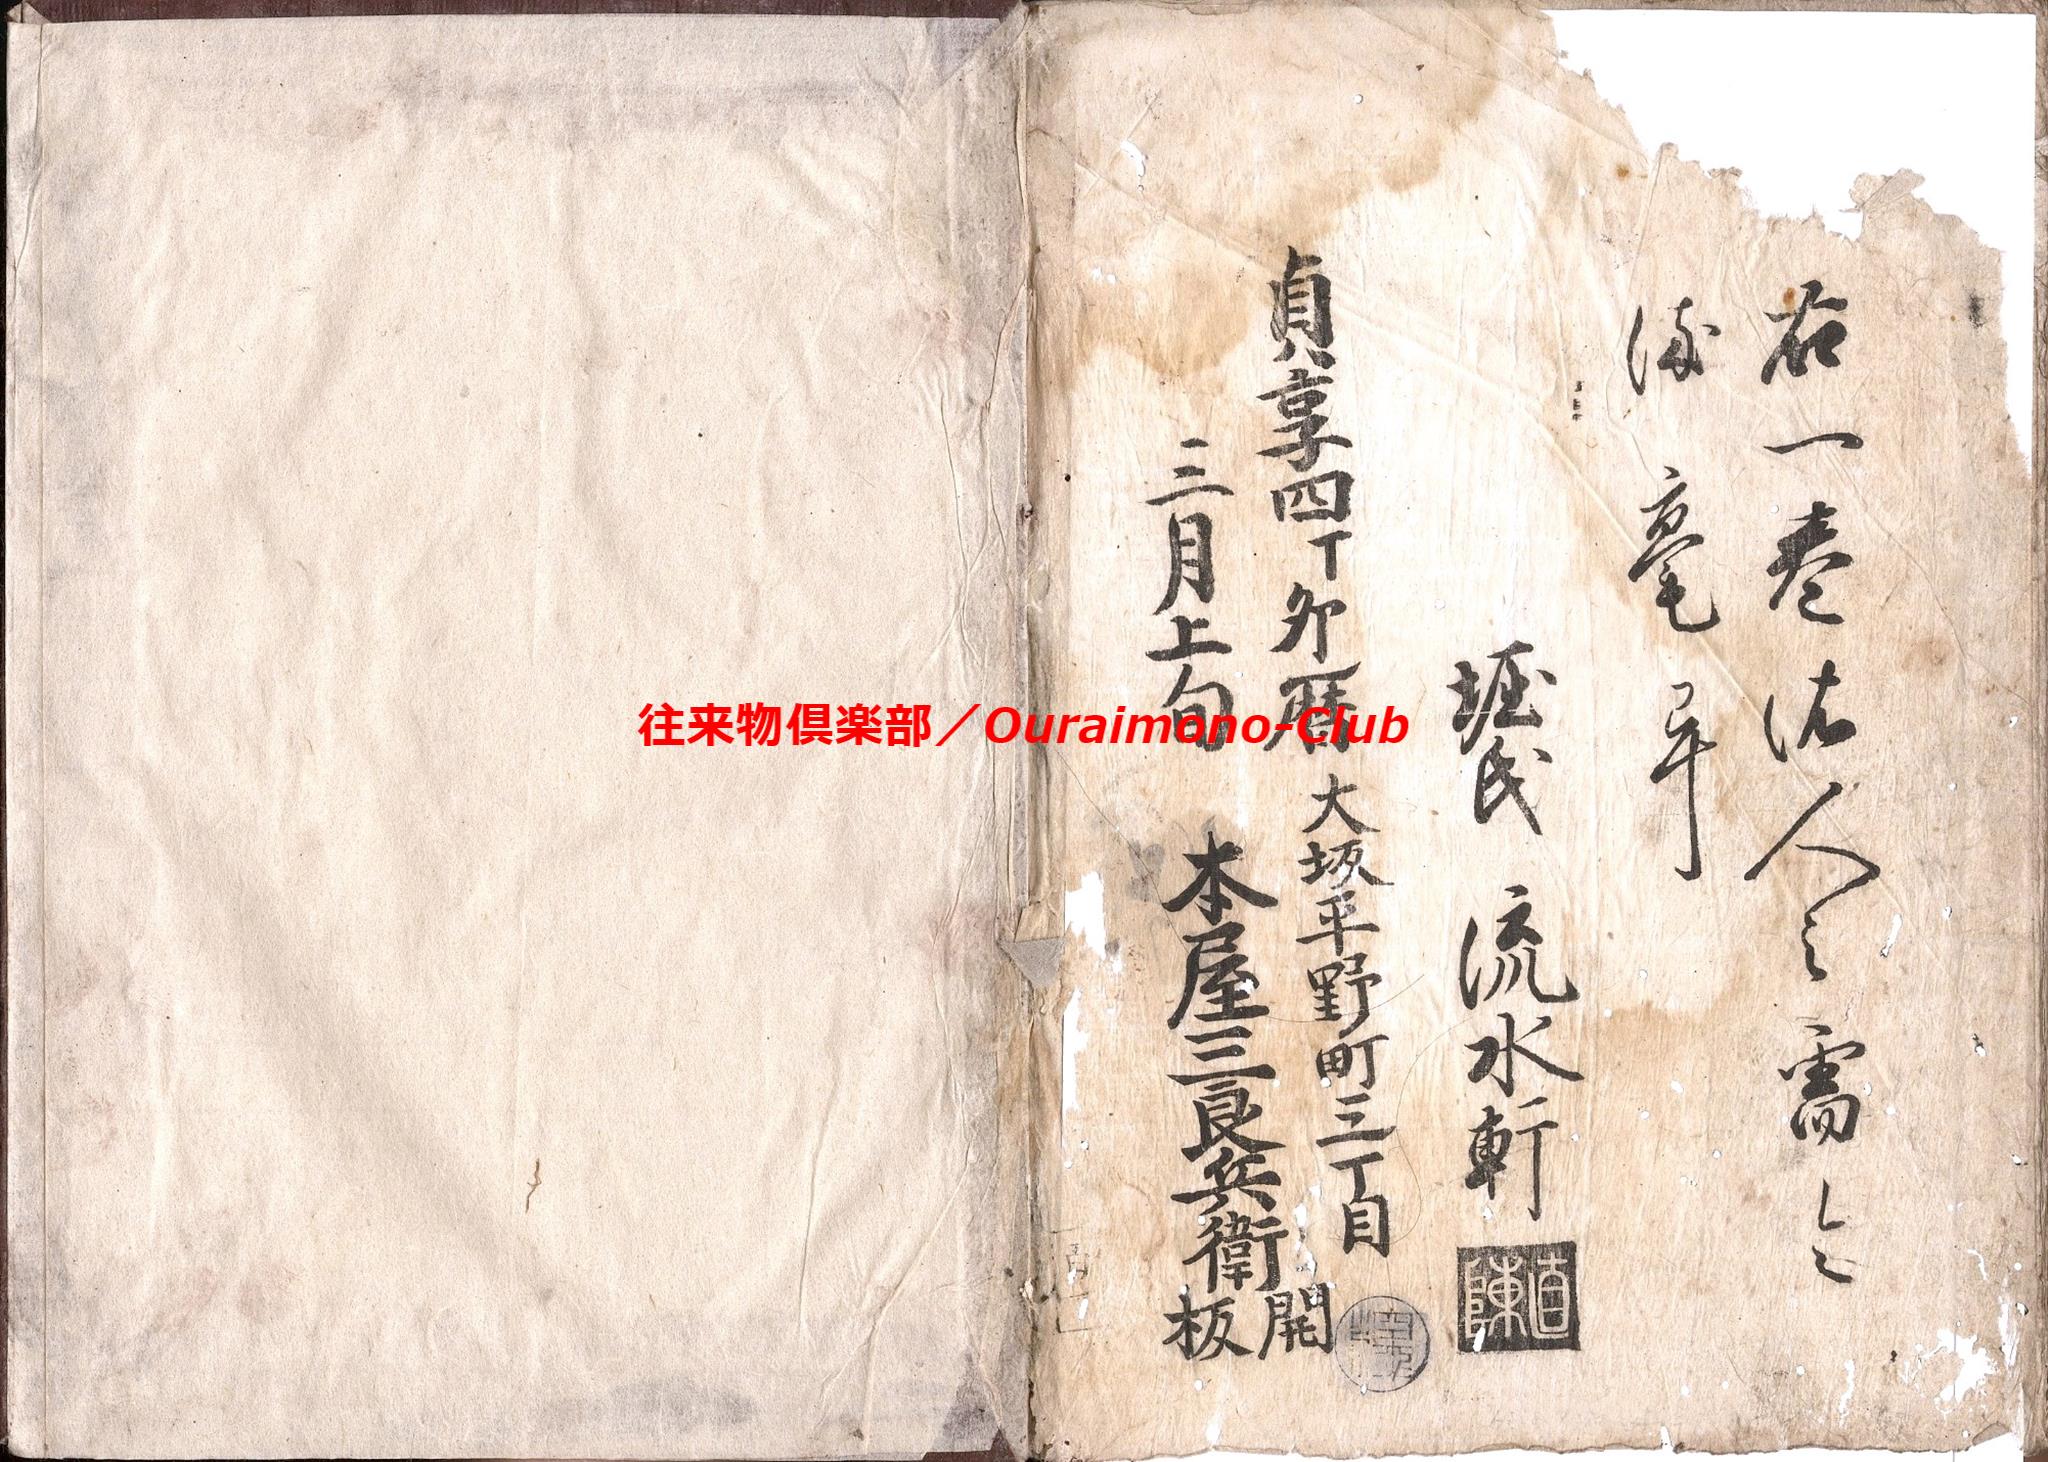 右一巻依人之需令
染毫畢
堀氏 流水軒
直陳
貞享四丁卯暦 大坂平野町三丁目
三月上旬 本屋三良兵衛
開板
往来物倶楽部／Ouraimono-Club